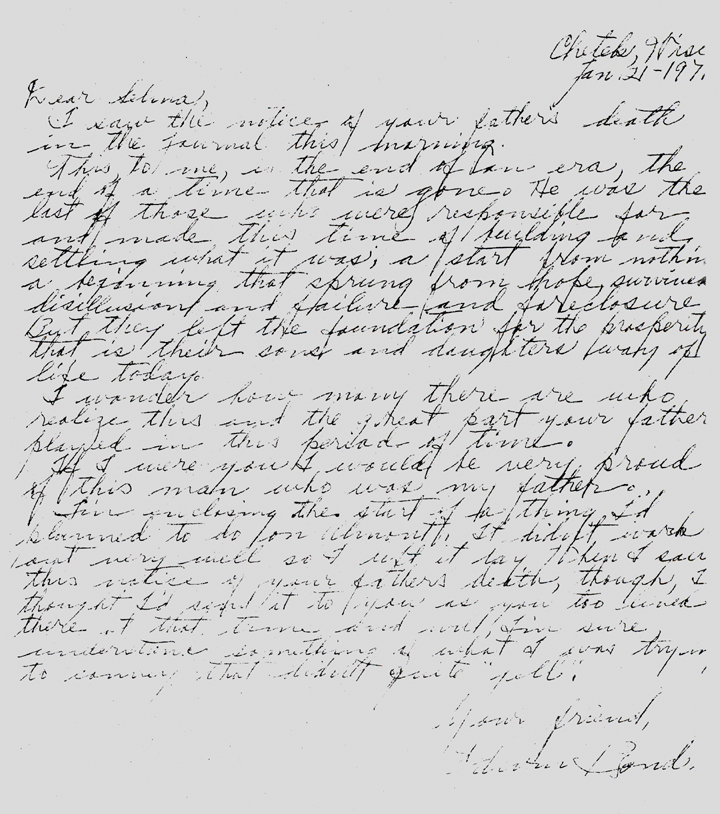 Chetek, Wisc
Jan. 21-197.
Dear Selma,
I saw the notice of your father's death
in the Journal this morning.
This, to me, is the end of an era, the
end of a time that is gone. He was the
last of those who were responsible for
and made this time of building and
settling what it was, a start from nothin
a beginning that sprung from hope, survived
disillusion and failure and foreclosure
But they left the foundation for the prosperity
that is their sons and daughters way of
life today.
I wonder how many there are who
realize this and the great part your father
played in this period of time.
If I were you I would be very proud
of this man who was my father.
I'm enclosing the start of a thing I'd
planned to do on Almont. It didn't work
out very well so I left it lay. When I saw
this notice of your father's death, though, I
thought I'd send it to you as you too lived
there at that time and will, I'm sure,
understand something of what I was tryin
to convey that didn't quite "jell".
Your friend,
Bond.